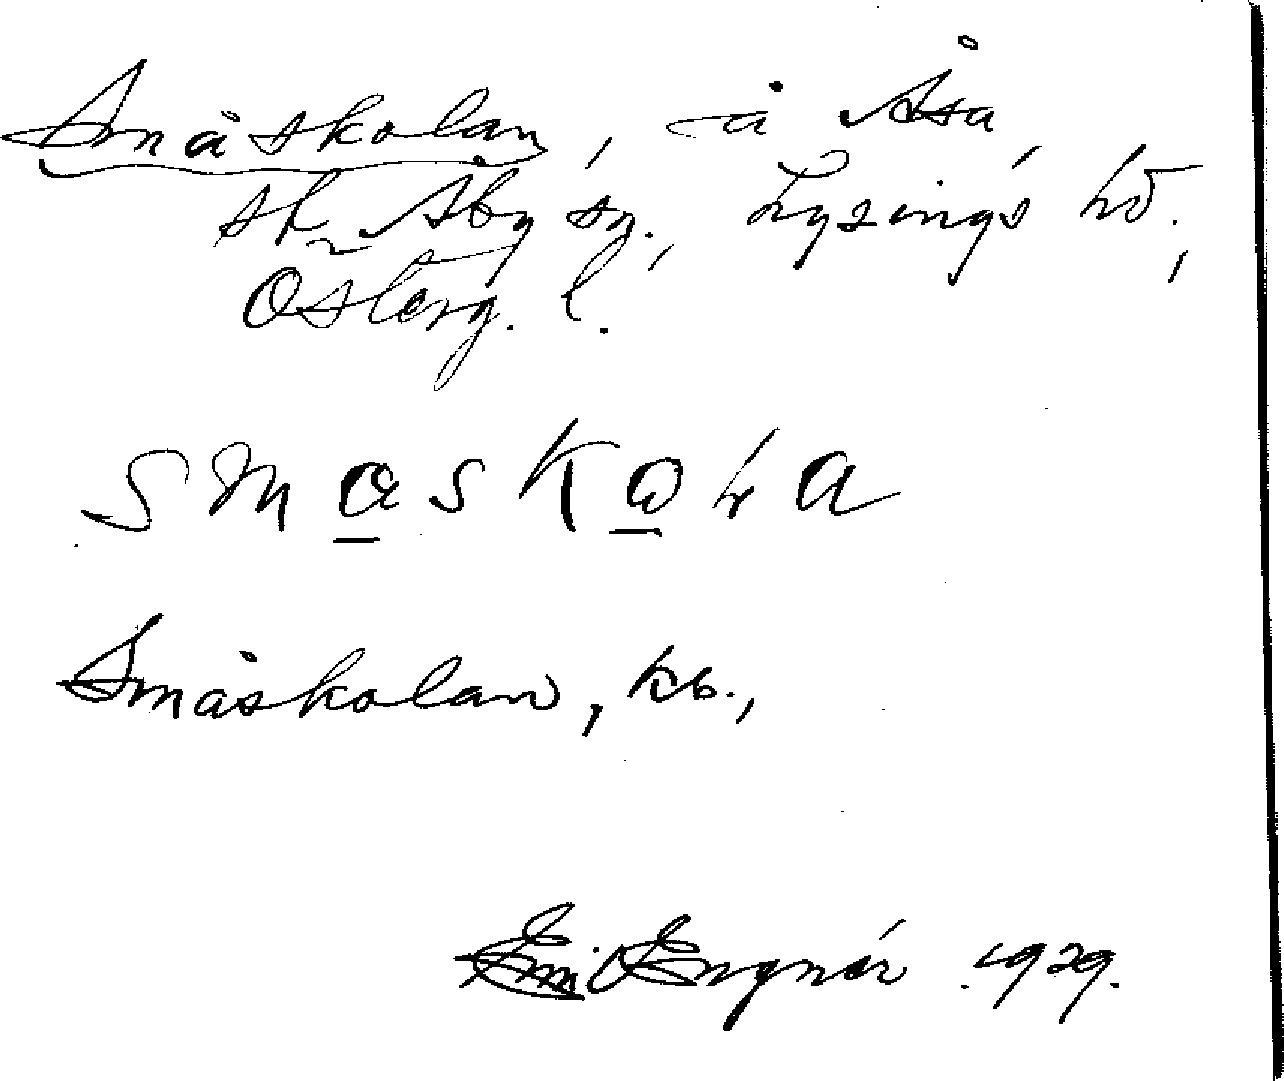 Småskolan, å Åsa
sk Åby sn., Lysings hd.,
Österg. l.
smaskola
Småskolan, kb.,
1929.